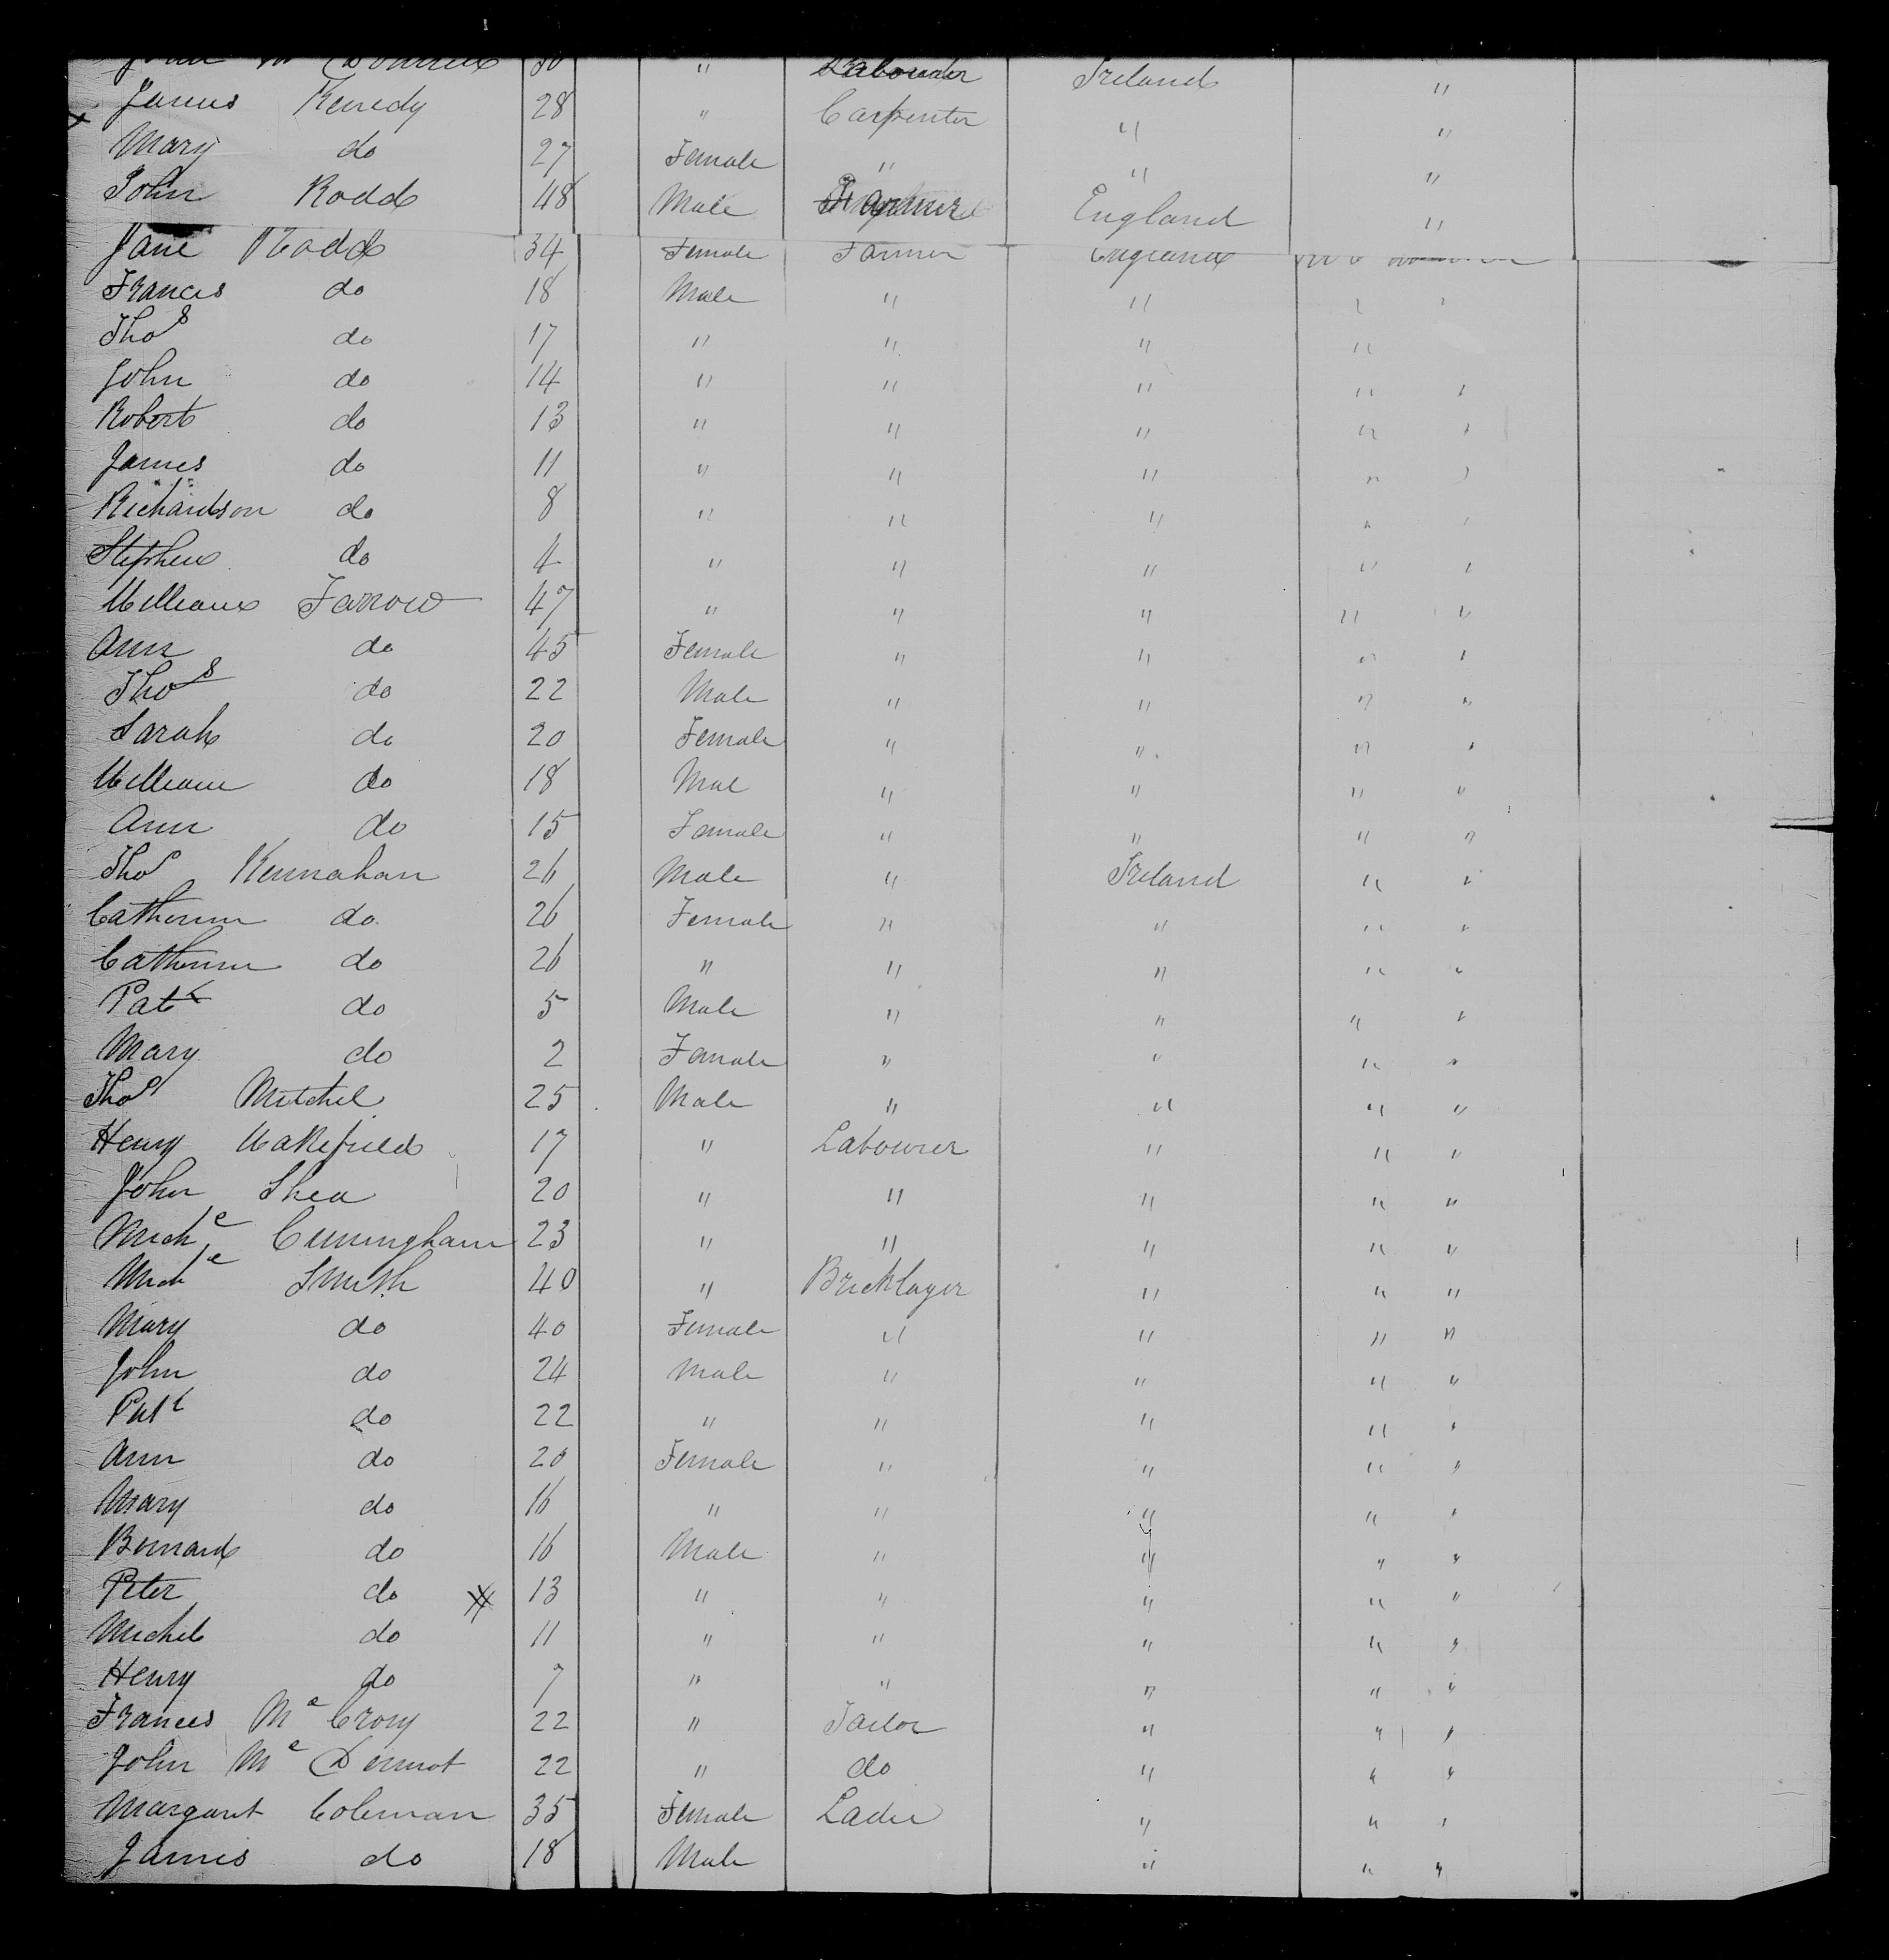 John Mc Donnell 30 " Labourer Ireland "
James Kenedy 28 " Carpenter " "
Mary do 27 Female " " "
John Rodd 48 Male England "
Jane Rodd 34 Female Farmer England
Frances do 18 Male " " " "
Thos do 17 " " " "
John do 14 " " " " "
Robert do 13 " " " " "
James do 11 " " " " "
Richardson do 8 " " " " "
Stephen do 4 " " " " "
William Farrow 47 " " " " "
Ann do 45 Female " " " "
Thos do 22 Male " " " "
Sarah do 20 Female " " " "
William do 18 Mal " " " "
Ann do 15 Female " " " "
Thos Kennahan 26 Male " Ireland " "
Catherine do 26 Female " " " "
Catherine do 26 " " " " "
Patk do 5 Male " " " "
Mary do 2 Female " " " "
Thos Mitchel 25 Male " " " "
Henry Wakefield 17 " Labourer " " "
John Shea 20 " " " " "
Michl Cuningham 23 " " " " "
Michl Smith 40 " Bricklayer " " "
Mary do 40 Female " " " "
John do 24 Male " " " "
Patk do 22 " " " " "
Ann do 20 Female " " " "
Mary do 16 " " " " "
Bernard do 16 Male " " " "
Peter do 13 " " " " "
Michel do 11 " " " " "
Henry do 7 " " " " "
Frances Mc Crory 22 " Tailor " " "
John Mc Dermot 22 " do " " "
Margaret Coleman 35 Female Ladie " " "
James do 18 Male " " "